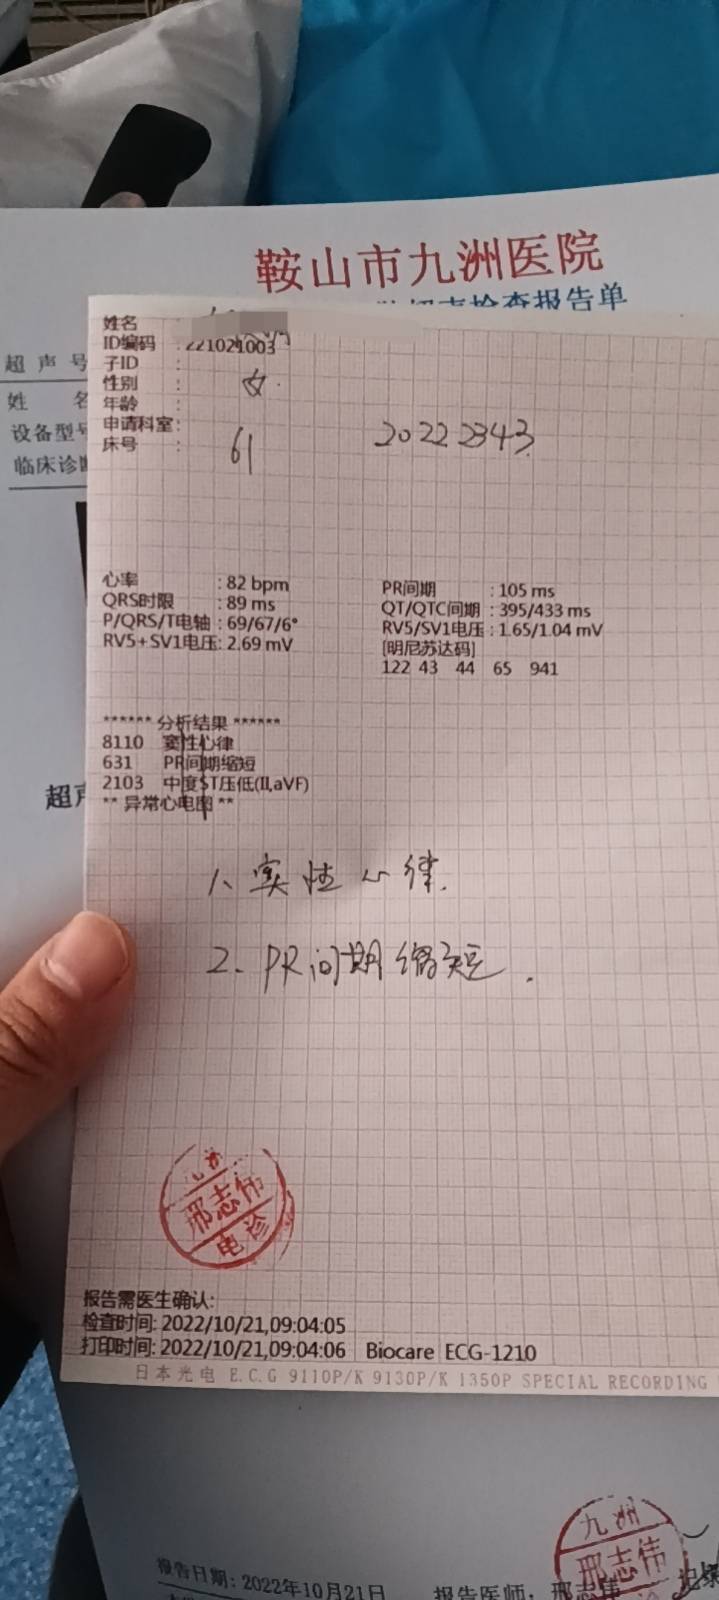 鞍山市九洲医院
超声检查报告单
超声号
姓名
设备型号
临床诊断
姓名 :
ID编码 : 221021003
子ID :
性别 : 女
年龄 :
申请科室:
床号 : 61
20222343
心率 : 82 bpm
QRS时限 : 89 ms
P/QRS/T电轴 : 69/67/6°
RV5+SV1电压: 2.69 mV
PR间期 : 105 ms
QT/QTC间期 : 395/433 ms
RV5/SV1电压 : 1.65/1.04 mV
[明尼苏达码]
122 43 44 65 941
****** 分析结果 ******
8110 窦性心律
631 PR间期缩短
2103 中度ST压低(II,aVF)
** 异常心电图 **
超声
1、窦性心律.
2. PR间期缩短.
九洲
邢志伟
电诊
报告需医生确认:
检查时间: 2022/10/21,09:04:05
打印时间: 2022/10/21,09:04:06 Biocare ECG-1210
日本光电 E.C.G 9110P/K 9130P/K 1350P SPECIAL RECORDING
九洲
邢志伟
报告日期: 2022年10月21日 报告医师: 邢志伟 记录